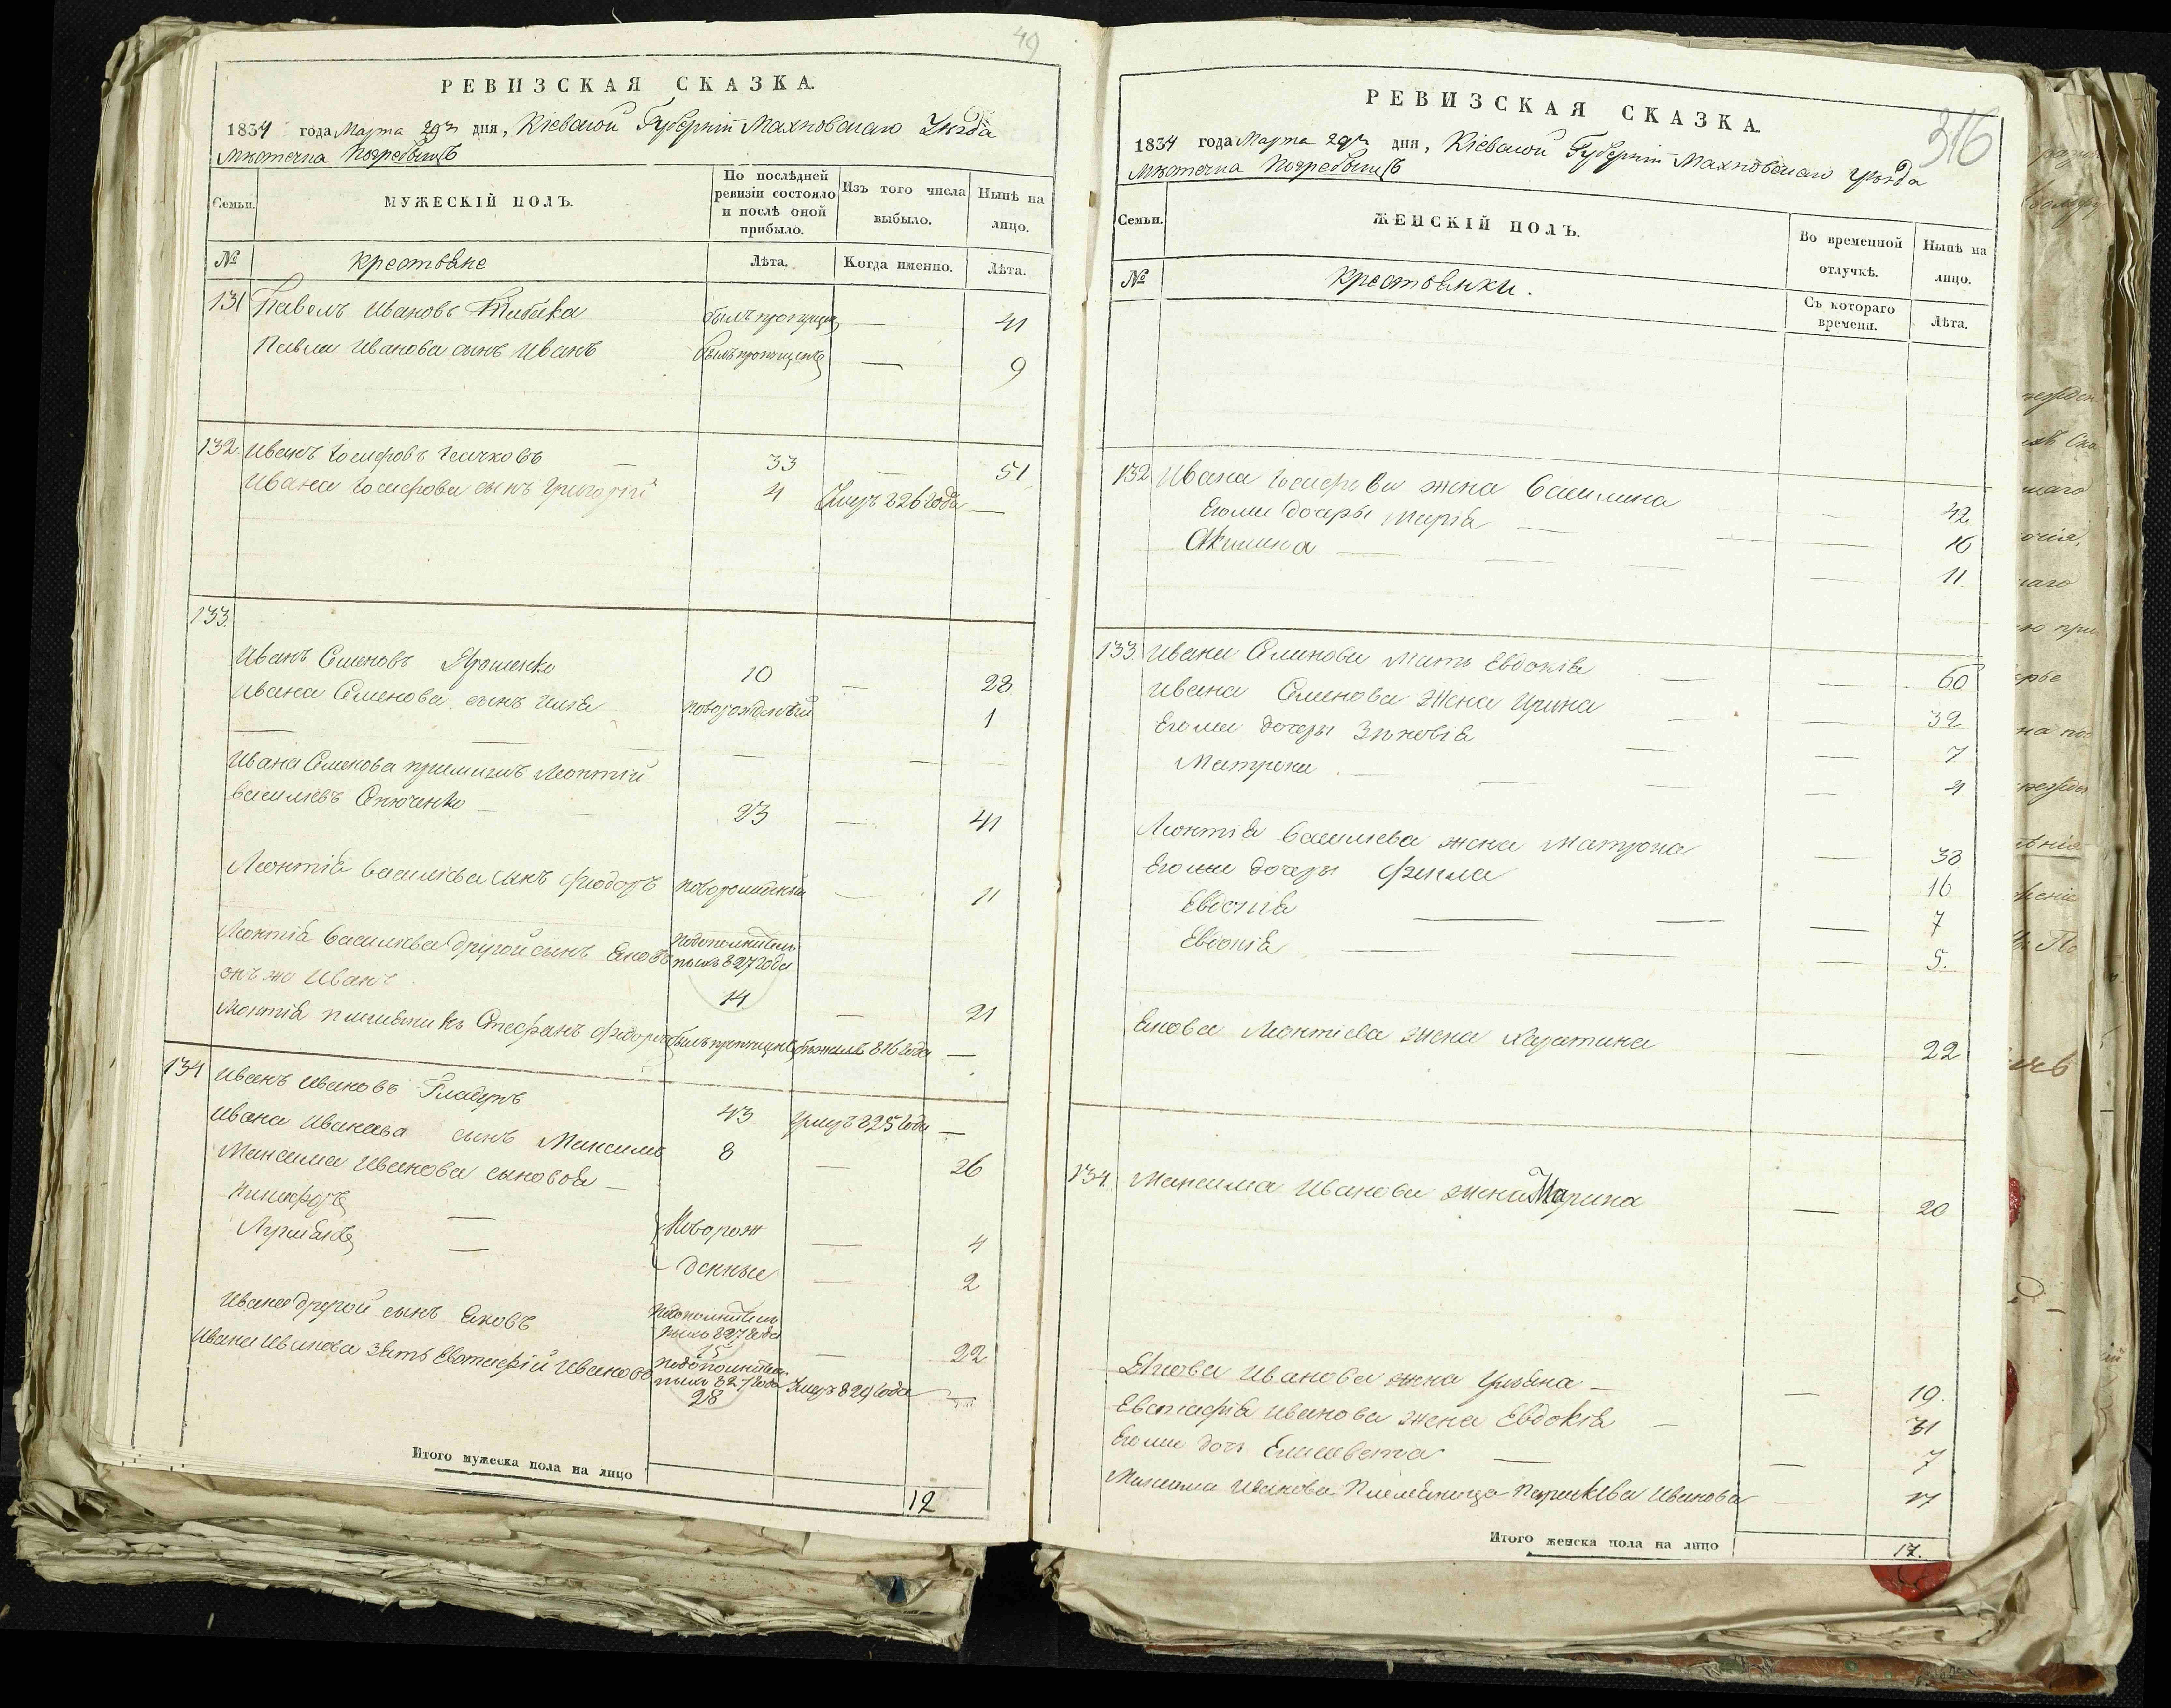 49
РЕВИЗСКАЯ СКАЗКА.
1834 года Марта 29го дня, Кіевской Губерніи Махновскаго Уезда
Мѣстечка Погребыщъ
Семьи.
МУЖЕСКІЙ ПОЛЪ.
По послѣдней ревизіи состояло и послѣ оной прибыло.
Изъ того числа выбыло.
Нынѣ на лицо.
№
крестьяне
Лѣта.
Когда именно.
Лѣта.
131 Павелъ Ивановъ былъ пропущенъ — 41
Павла Иванова сынъ Иванъ былъ пропущенъ — 9
132 Иванъ Іосифовъ — 33 — 51
Ивана Іосифова сынъ Григорій 4 Умеръ 826 года —
133.
Иванъ Семеновъ Ярошенко 10 — 28
Ивана Семенова сынъ Илія новорожденный 1
Ивана Семенова приимышъ Леонтій
Василіевъ — 23 — 41
Леонтія Василіева сынъ Феодоръ новорожденный — 11
Леонтія Василіева другой сынъ Яковъ
онъ же Иванъ
по дополнительныхъ 827 года
14 — 21
Леонтія племянникъ Стефанъ Федоровъ былъ пропущенъ бѣжалъ 816 года —
134 Иванъ Ивановъ Гладунъ 43 Умеръ 825 года —
Ивана Иванова сынъ Максимъ 8 — 26
Максима Иванова сыновья —
Никифоръ — Новорож — 4
— денные — 2
Ивана другой сынъ Яковъ по дополнительныхъ 827 года 15 — 22
Ивана Иванова зять Евстафій Ивановъ по дополнительныхъ 827 года 28 Умеръ 829 года —
Итого мужеска пола на лицо
12
316
РЕВИЗСКАЯ СКАЗКА.
1834 года Марта 29го дня, Кіевской Губерніи Махновскаго Уѣзда
Мѣстечка Погребыщъ
Семьи.
ЖЕНСКІЙ ПОЛЪ.
Во временной отлучкѣ.
Нынѣ на лицо.
№
крестьянки.
Съ котораго времени.
Лѣта.
132 Ивана Іосифова жена Василина — 42
Его же дочеры Марія — — 16
Акилина — — 11.
133. Ивана Семенова мать Евдокія — — 60
Ивана Семенова жена Ирина — — 32
Его же дочеры Зѣновія — — 7
Матрона — — 4
Леонтія Василіева жена Матрона — 38
Его же дочеры Фекла 16
Евдокія — — 7
Евдокія — — 5.
Якова Леонтіева жена Харитина — 22
134. Максима Иванова жена Марина — 20
Якова Иванова жена Уліяна — — 19.
Евстафія Иванова жена Евдокія — 31
Его же дочь Елисавета — — 7
Максима Иванова племянница Параскева Иванова — 17
Итого женска пола на лицо
17.